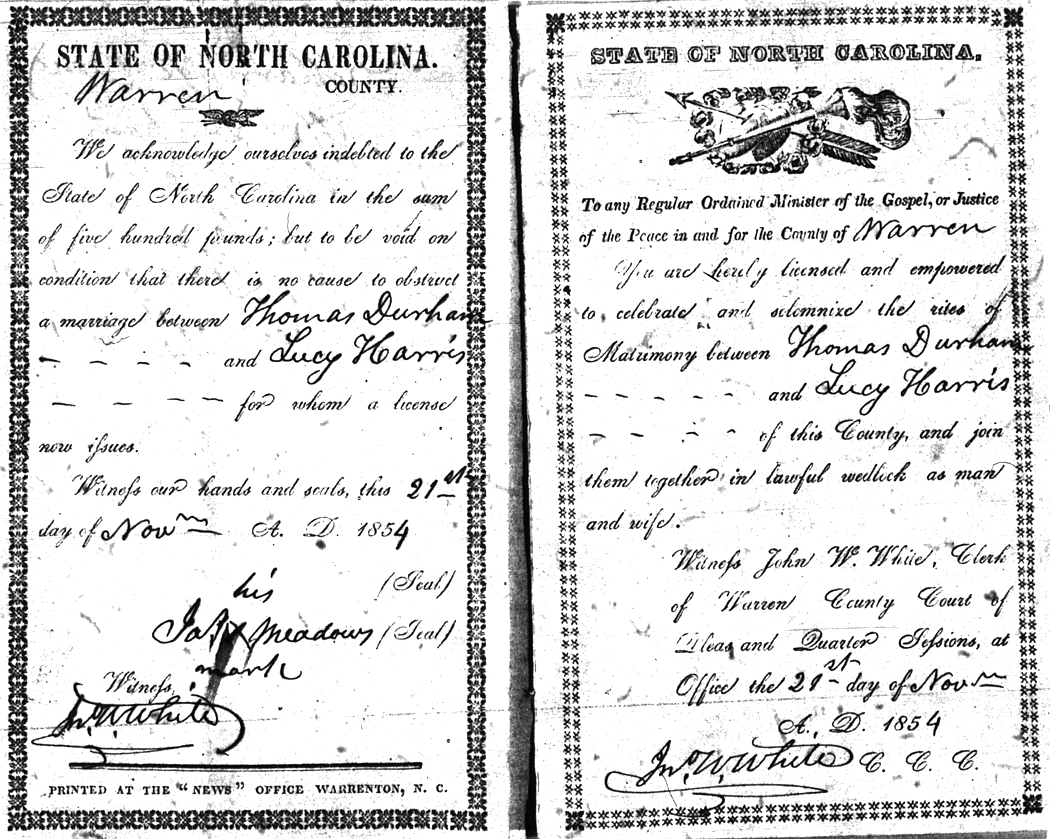 STATE OF NORTH CAROLINA.
Warren COUNTY.
We acknowledge ourselves indebted to the
State of North Carolina in the sum
of five hundred pounds; but to be void on
condition that there is no cause to obstruct
a marriage between Thomas Durham
- - - - and Lucy Harris
- - - - for whom a license
now issues.
Witness our hands and seals, this 21st
day of Novm A. D. 1854
his (Seal)
Jas X Meadows (Seal)
mark
Witness,
Jno. W. White
PRINTED AT THE "NEWS" OFFICE WARRENTON, N. C.
STATE OF NORTH CAROLINA.
To any Regular Ordained Minister of the Gospel, or Justice
of the Peace in and for the County of Warren
You are hereby licensed and empowered
to celebrate and solemnize the rites of
Matrimony between Thomas Durham
- - - - - and Lucy Harris
- - - - of this County, and join
them together in lawful wedlock as man
and wife.
Witness John W. White, Clerk
of Warren County Court of
Pleas and Quarter Sessions, at
Office the 21st day of Novm
A. D. 1854
Jno. W. White C. C. C.